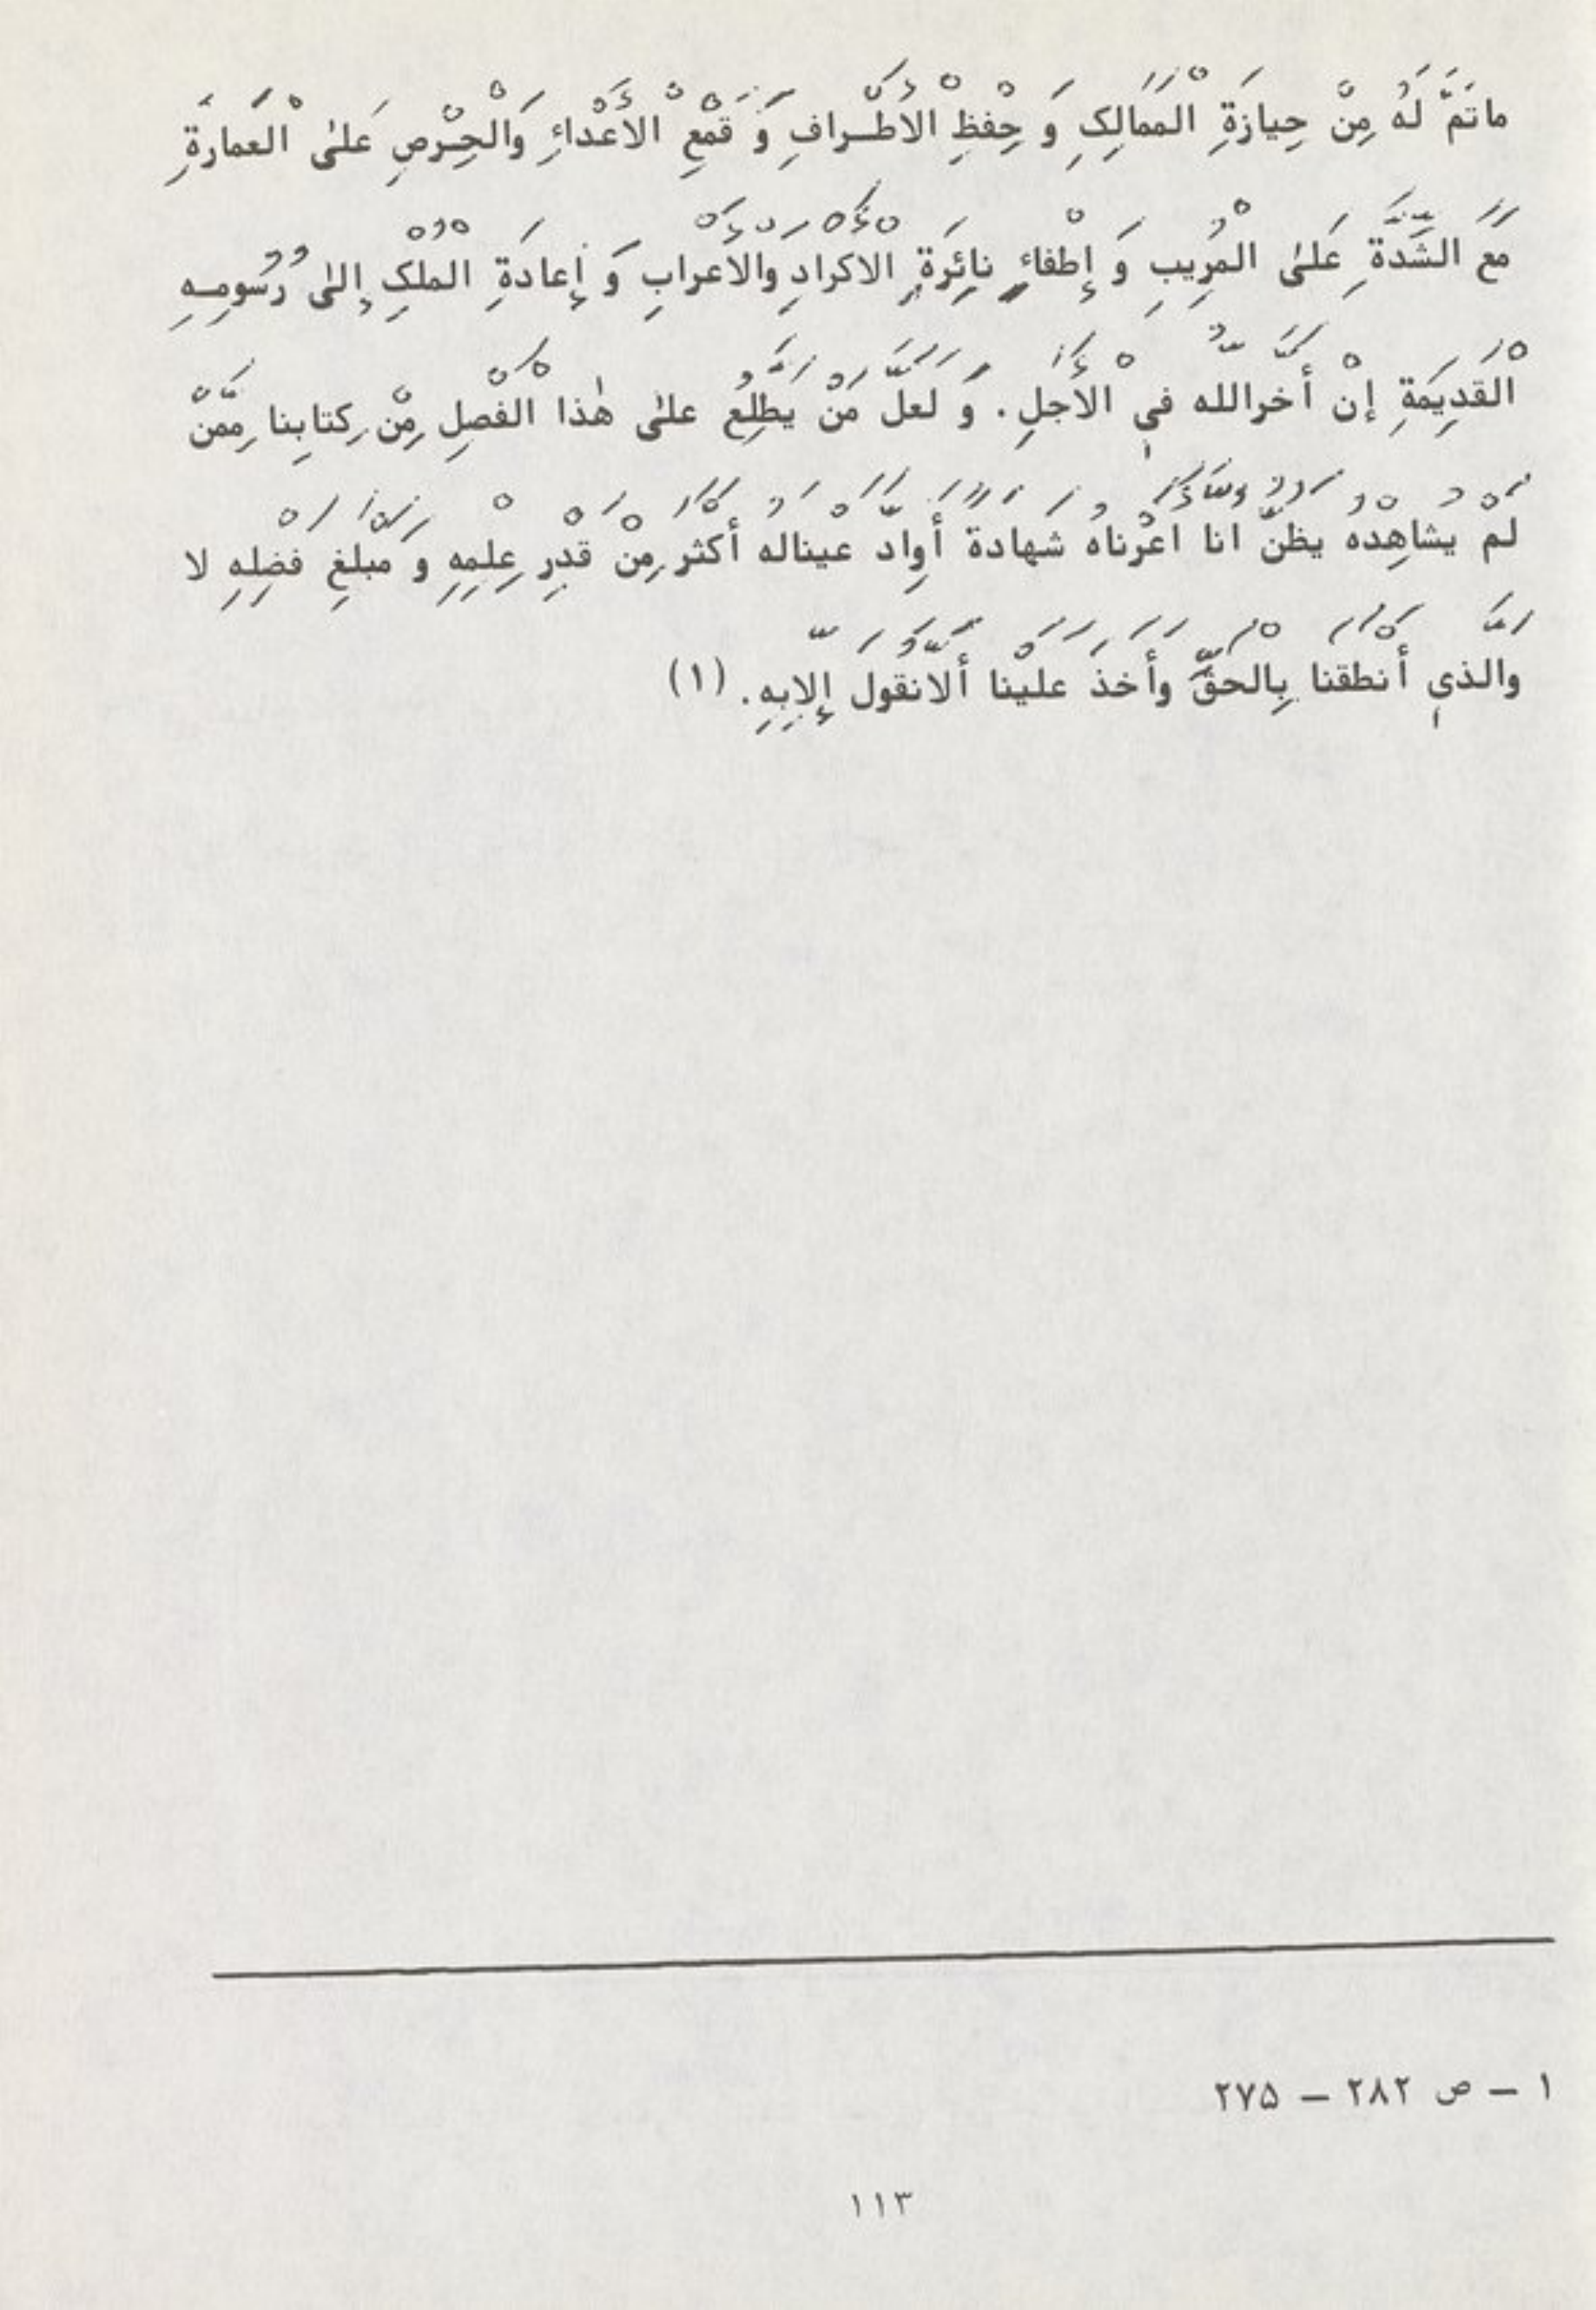 ماتَمَّ لَهُ مِنْ حِيازَةِ الْمَمَالِکِ وَ حِفْظِ الْأَطْـرافِ وَ قَمْعِ الْأَعْداءِ وَالْحِـرْصِ عَلیٰ الْعَمارَةِ
مَعَ الشَّدَّةِ عَلیٰ الْمُرِیبِ وَ إِطْفاءِ نائِرَةِ الْأَکْرادِ والْأَعْرابِ وَ إِعادَةِ الْمُلْکِ إِلیٰ رُسُومِـهِ
الْقَدِیمَةِ إِنْ أَخَّرَاللّٰه فِی الْأَجَلِ . وَ لَعَلَّ مَنْ یَطَّلِعُ علیٰ هٰذا الْفَصْلِ مِنْ کِتابِنا مِمَّنْ
لَمْ یُشاهِدْهُ یَظُنُّ أَنّا أَعَرْناهُ شَهادَةً أَوِادَّ عَیْنالَهُ أَکْثَرَ مِنْ قَدْرِ عِلْمِهِ وَ مَبْلَغِ فَضْلِهِ لا
وَالَّذِی أَنْطَقَنا بِالْحَقِّ وَأَخَذَ عَلَیْنا أَلّانَقُولَ إِلّابِهِ . (١)
١ – ص ٢٨٢ – ٢٧۵
١١٣